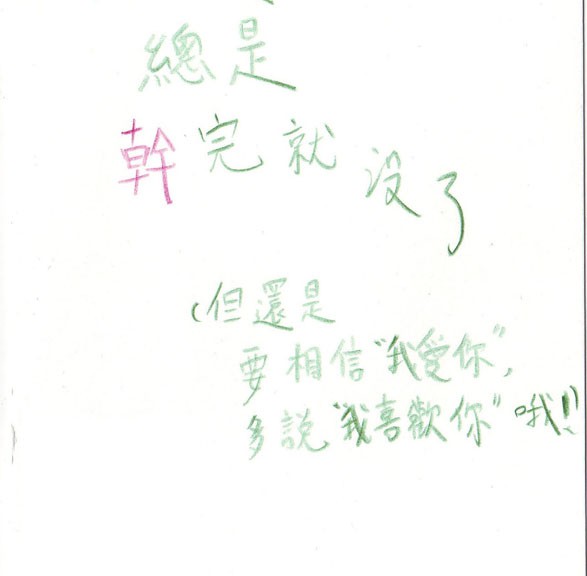 總是
幹完就没了
(但還是
要相信"我愛你",
多說"我喜歡你"哦!!)